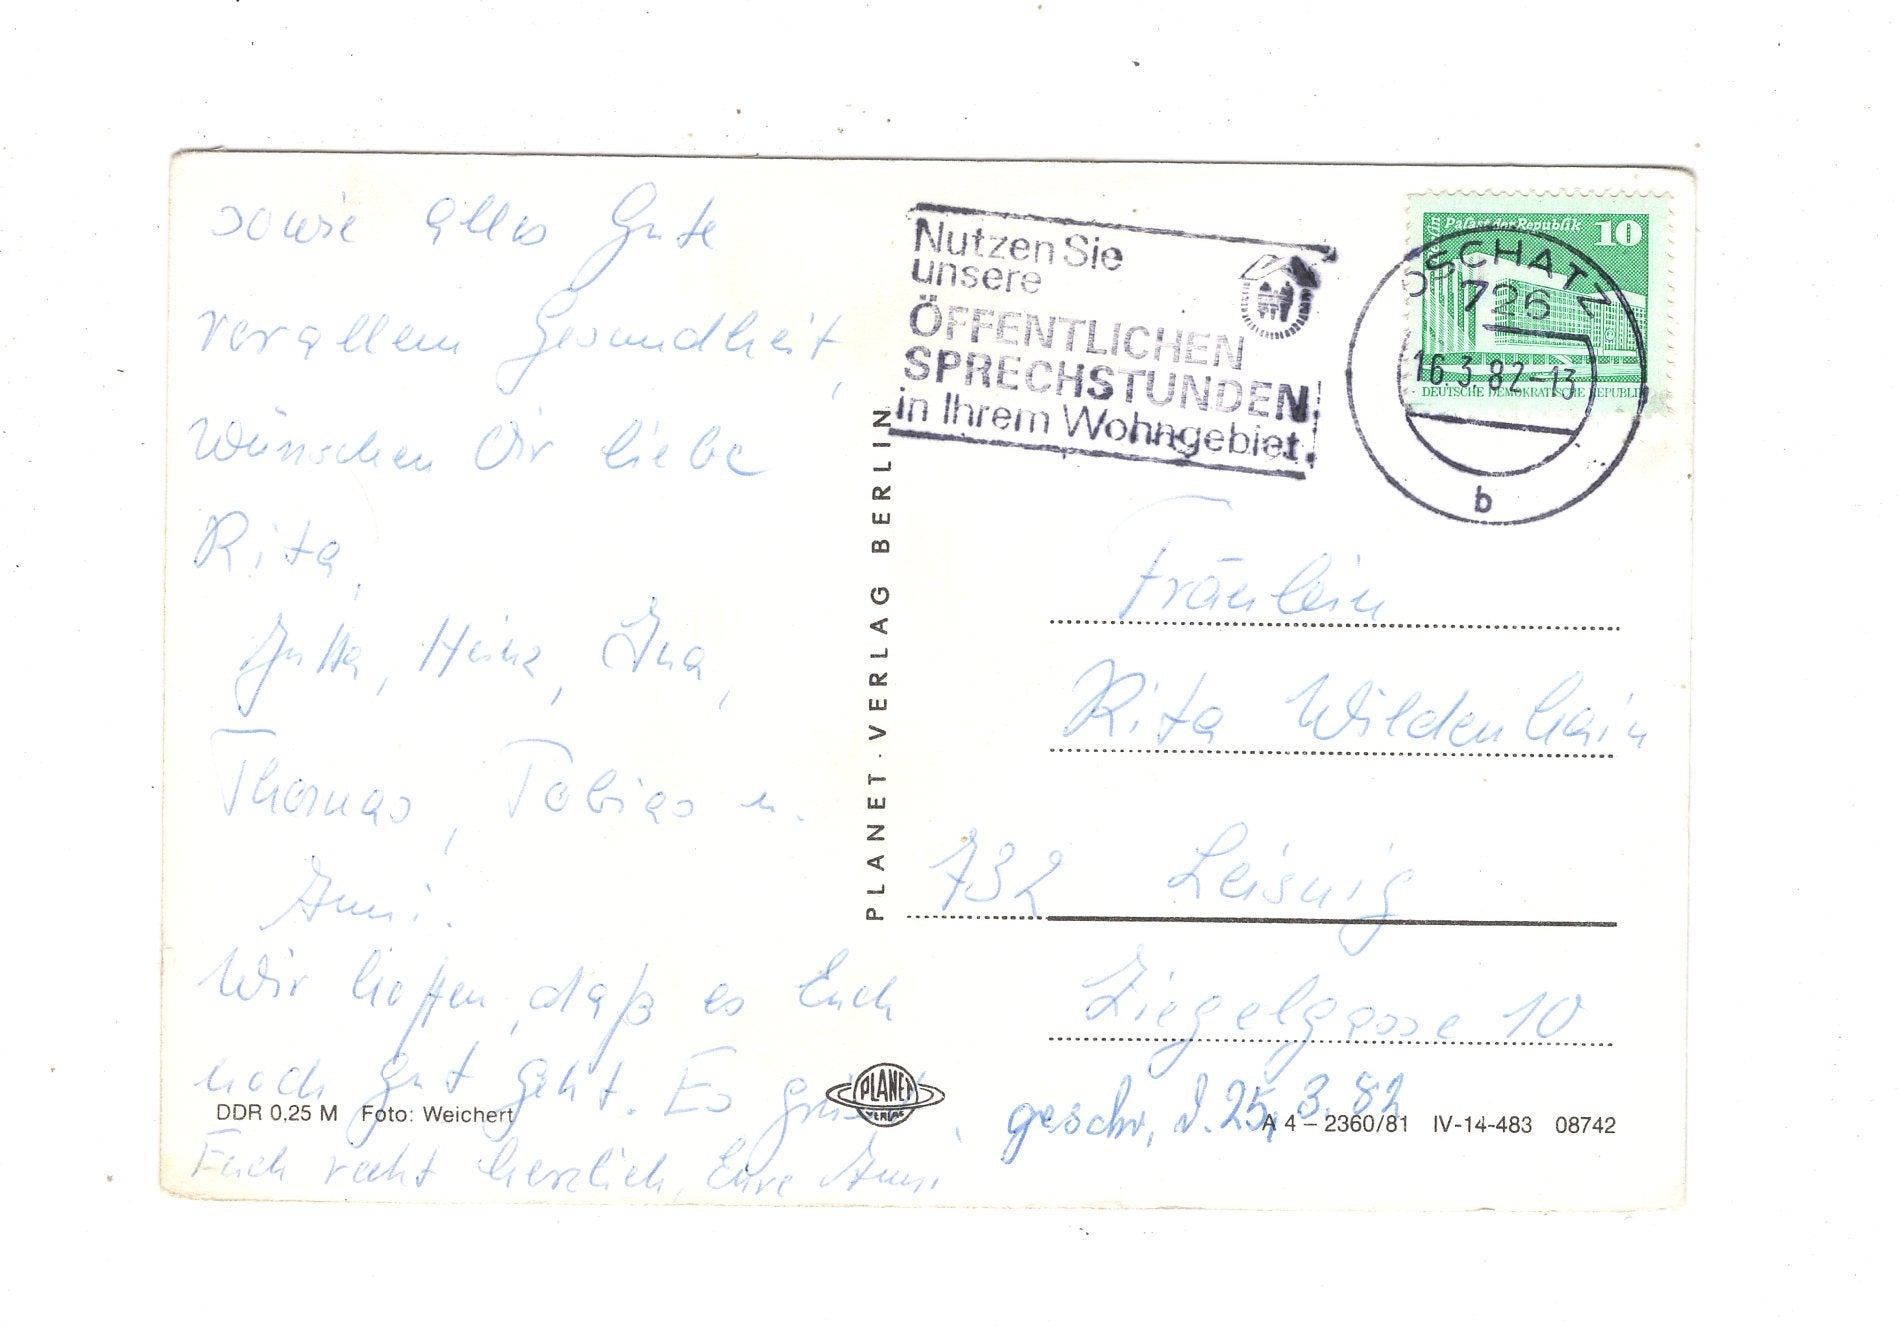 sowie alles Gute
vor allem Gesundheit,
wünschen Dir liebe
Rita,
Jutta, Heinz, Ina,
Thomas, Tobias u.
Anni.
Wir hoffen, daß es Euch
noch gut geht. Es grüßt
Euch recht herzlich, Eure Anni
DDR 0,25 M Foto: Weichert
PLANET-VERLAG BERLIN
PLANET
VERLAG
Nutzen Sie
unsere
ÖFFENTLICHEN
SPRECHSTUNDEN
in Ihrem Wohngebiet.
Berlin Palast der Republik 10
DEUTSCHE DEMOKRATISCHE REPUBLIK
OSCHATZ
726
16.3.82-13
b
Fräulein
Rita Wildenhain
732 Leisnig
Ziegelgasse 10
geschr. d. 25.3.82
A 4 – 2360/81 IV-14-483 08742